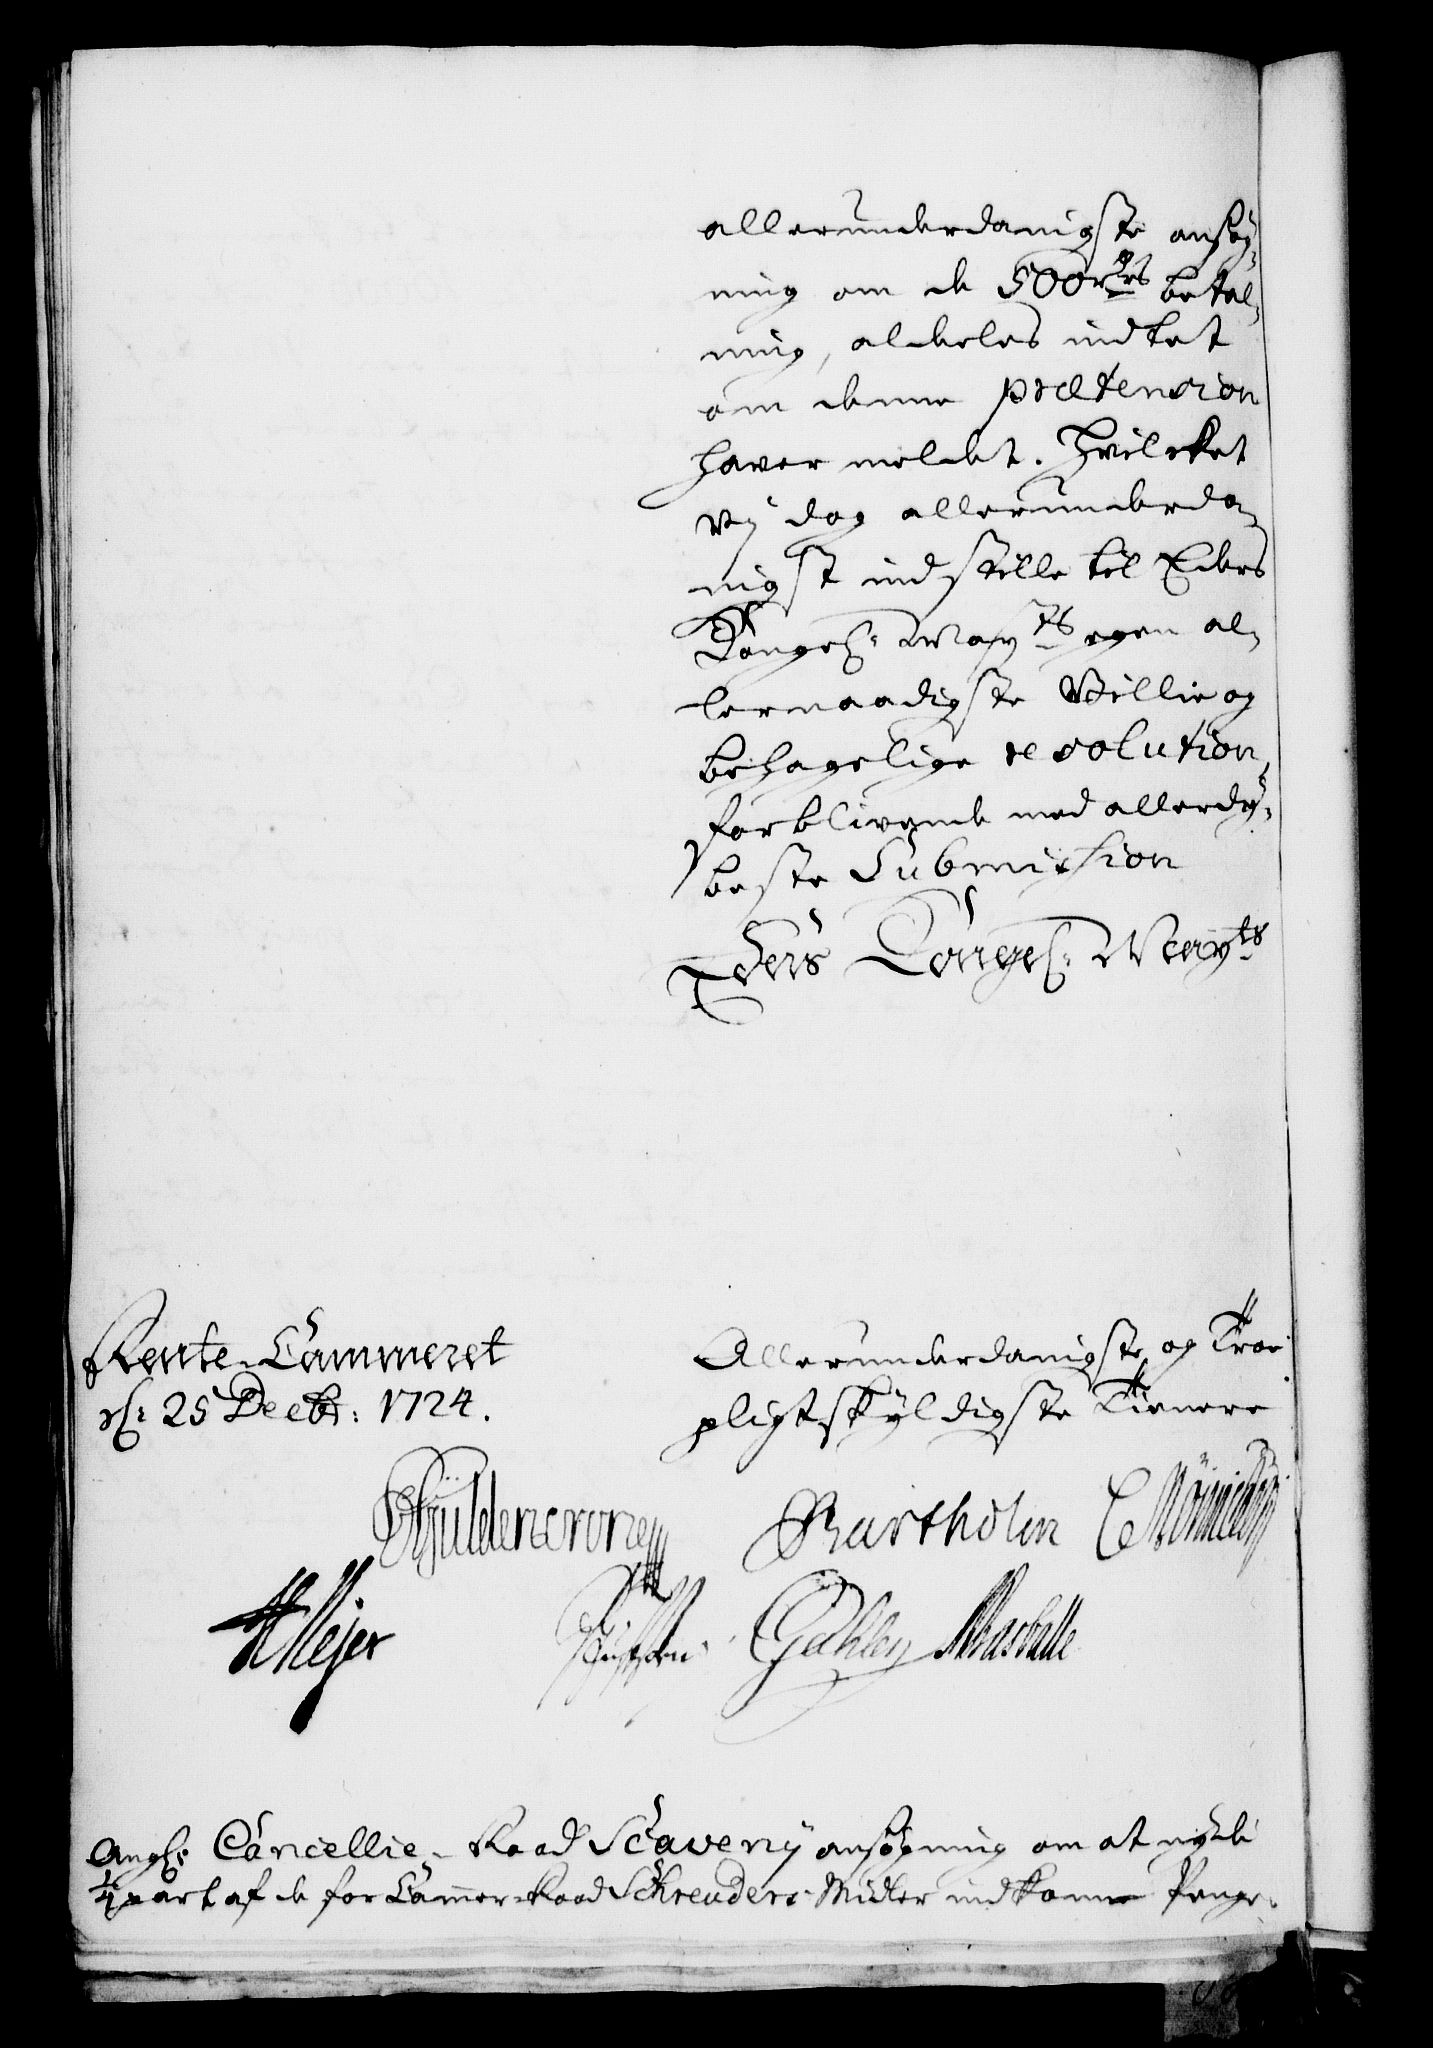 allerunderdanigste ansøg-
ning om de 500 rdrs betal-
ning, aldeles indtet
om denne prætension
haver meldet. Hvilcket
vj dog allerunderda-
nigst indstille til Eders
Kongel: Mayts egen al-
lernaadigste Villie og
behagelige resolution,
forblivende med allerdy-
beste Submission
Eders Kongel: Mayts
Rente-Cammeret
d: 25 Decbr: 1724.
Allerunderdanigste og Troe
pligtskyldigste Tienere
Güldencrone
Bartholin
HMejer
Gahlen
Angl: Cancellie-Raad Scaveny ansøgning om at nyde
1/4 part af de for Cammer-Raad Schreuders Midler indkomne Penge.